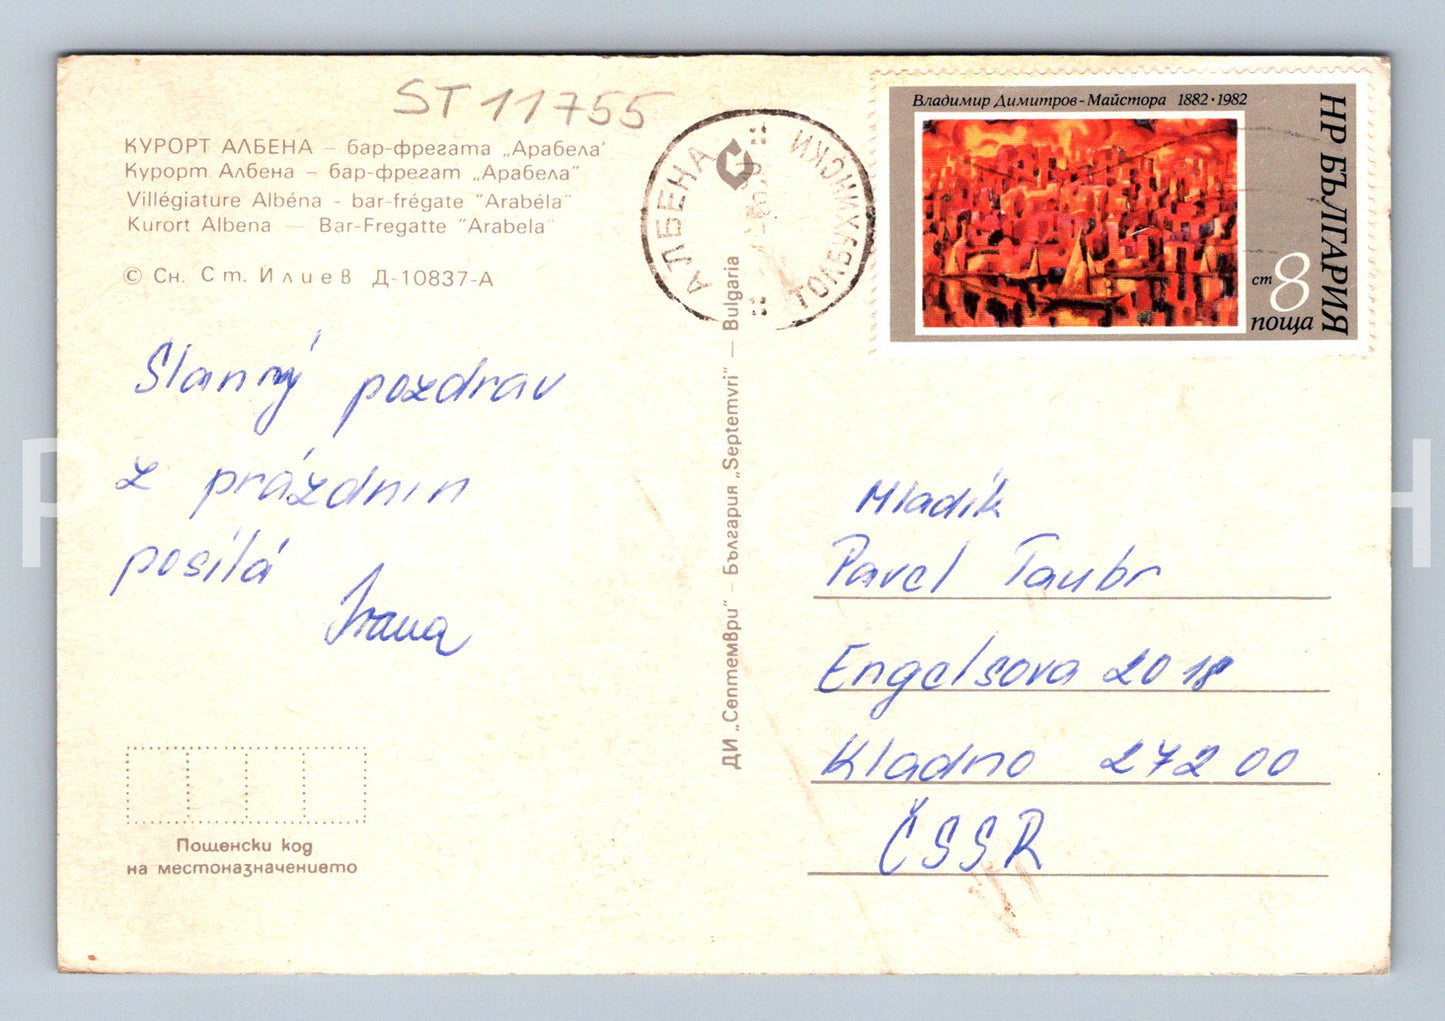 ST 11755
КУРОРТ АЛБЕНА – бар-фрегата „Арабела'
Курорт Албена – бар-фрегат „Арабела"
Villégiature Albéna - bar-frégate "Arabéla"
Kurort Albena — Bar-Fregatte "Arabela"
© Сн. Ст. Илиев Д-10837-А
Slanný pozdrav
z prázdnin
posílá
Ivana
Пощенски код
на местоназначението
ДИ „Септември" – България „Septemvri" – Bulgaria
АЛБЕНА
ТОЛБУХИНСКИ
Владимир Димитров-Майстора 1882·1982
НР БЪЛГАРИЯ
ст 8
поща
Mladík
Pavel Taubr
Engelsova 2018
Kladno 272 00
ČSSR